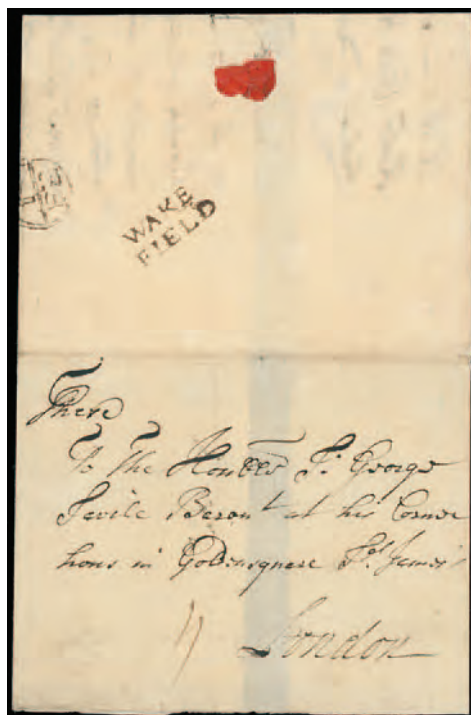 WAKE
FIELD
There
To The Honble Sr George
Savile Baront at his Corner
hous in Goldensquare St James's
London